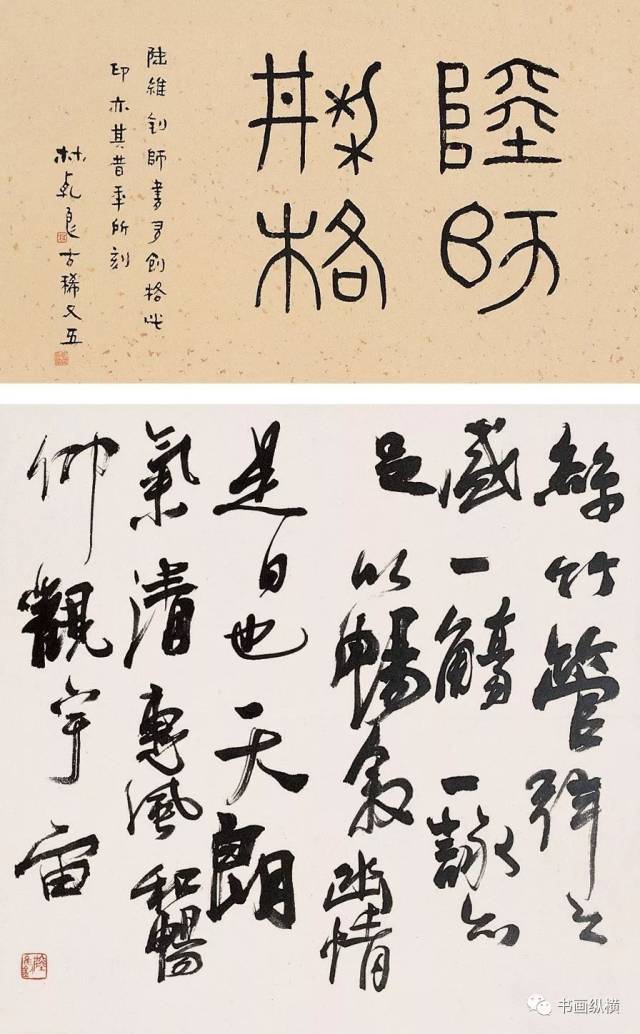 陸師
刱格
陸維釗師書多創格此
印亦其昔年所刻
林乾良古稀又五
絲竹管弦之
盛一觴一詠亦
足以暢敘幽情
是日也天朗
氣清惠風和暢
仰觀宇宙
书画纵横